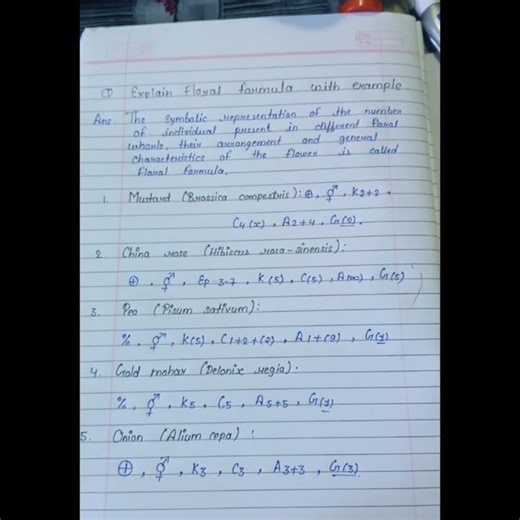 ① Explain Floral formula with example
Ans The symbolic representation of the number
of individual present in different floral
whorls, their arrangement and general
characteristics of the flower is called
Floral formula.
1. Mustard (Brassica compestris): ⊕, ⚥, K2+2,
C4(x), A2+4, G(2).
2 China rose (Hibiscus rosa-sinensis):
⊕, ⚥, Ep-3-7, K(5), C(5), A(∞), G(5)
3. Pea (Pisum sativum):
%, ⚥, K(5), C1+2+(2), A1+(9), G(1)
4. Gold mohar (Delonix regia):
%, ⚥, K5, C5, A5+5, G(1)
5. Onion (Alium cepa):
⊕, ⚥, K3, C3, A3+3, G(3)